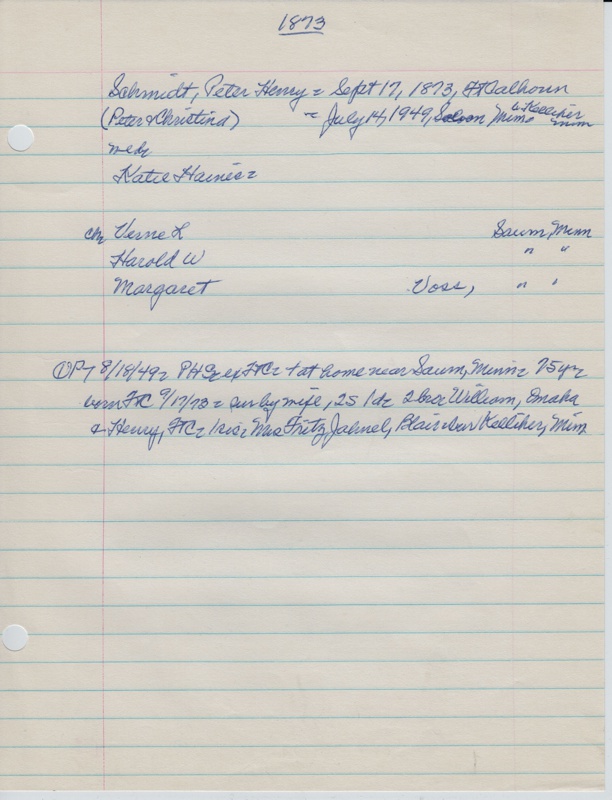 1873
Schmidt, Peter Henry = Sept 17, 1873, Ft Calhoun
(Peter & Christina) = July 14, 1949, Minn b. Kelliher Minn
wed
Katie Haines =
ch Verne L Saum, Minn
Harold W " "
Margaret Voss, " "
8/18/49 = PHS ex FtC = + at home near Saum, Minn = 75 yr
born FtC 9/17/73 = sur by wife, 2s 1d = 2 bro William, Omaha
& Henry, FtC = 1 sis = Mrs Fritz Jahnel, Blair = bur Kelliher, Minn